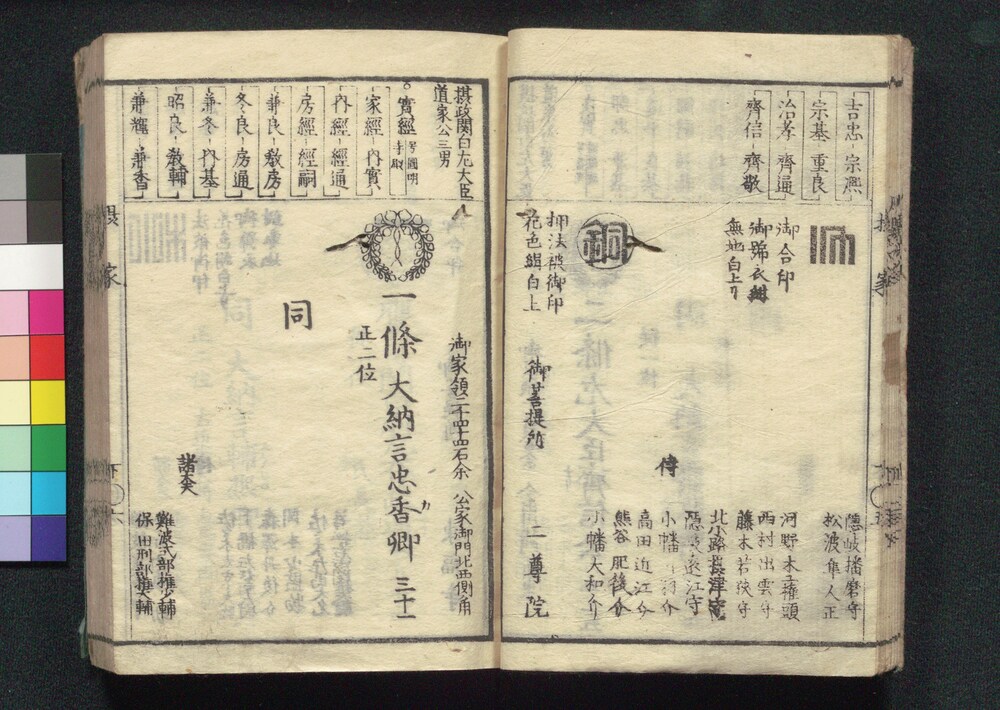 吉忠 宗凞
宗基 重良
治孝 齊通
齊信 齊敬
御合印
御號衣紺
無地白上り
隠岐播磨守
松波隼人正
河野木工権頭
西村出雲守
藤木若狭守
北小路摂津守
隠岐遠江守
高田近江介
熊谷肥後介
小幡大和介
侍
銅
押法被御印
花色緝白上
御菩提所
二尊院
摂家
摂政関白左大臣
道家公三男
實經
家經 内實
内經 經通
房經 經嗣
兼良 教房
冬良 房通
兼冬 内基
昭良 教輔
兼輝 兼香
御家領二千四十四石余 公家御門北西側角
一條大納言忠香卿 三十一
正二位
同
諸大夫
難波式部権少輔
保田刑部権大輔
摂家
下 六